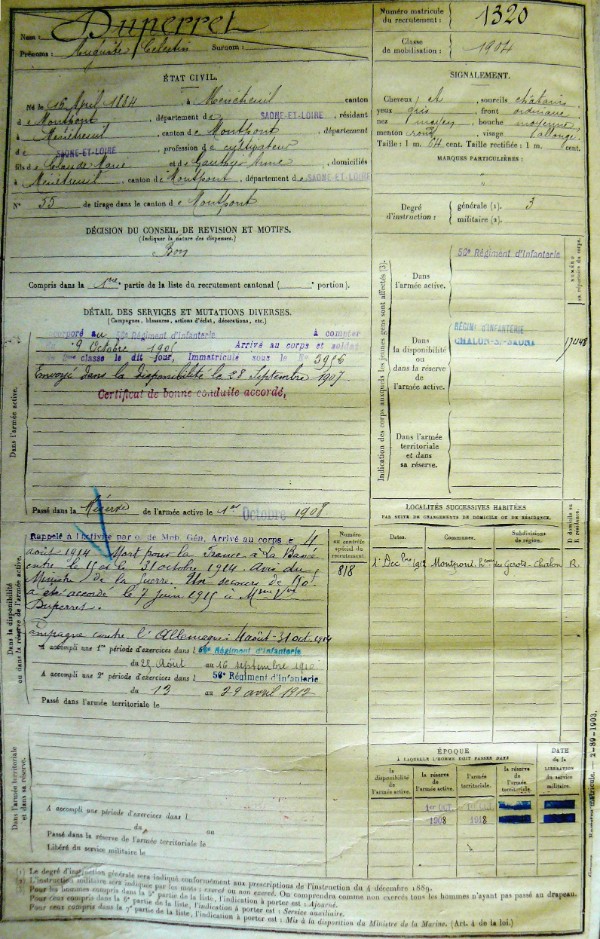 Nom : Duperret
Prénoms : Auguste Célestin Surnom :
Numéro matricule du recrutement : 1320
Classe de mobilisation : 1904
ÉTAT CIVIL.
Né le 15 April 1884 à Ménetreuil canton
de Montpont, département de SAONE-ET-LOIRE, résidant
à Ménetreuil, canton de Montpont, département
de SAONE-ET-LOIRE, profession de cultivateur
fils de Claude Marie et de Anne, domiciliés
à Ménetreuil, canton de Montpont, département de SAONE-ET-LOIRE
N° 55 de tirage dans le canton de Montpont
SIGNALEMENT.
Cheveux ch, sourcils châtains
yeux gris front ordinaire
nez moyen, bouche moyenne
menton rond, visage allongé
Taille : 1 m. 64 cent. Taille rectifiée : 1 m. cent.
MARQUES PARTICULIÈRES :
Degré d'instruction : générale (1). 3
militaire (2).
DÉCISION DU CONSEIL DE REVISION ET MOTIFS.
(Indiquer la nature des dispenses.)
Bon
Compris dans la 1re partie de la liste du recrutement cantonal ( portion).
DÉTAIL DES SERVICES ET MUTATIONS DIVERSES.
(Campagnes, blessures, actions d'éclat, décorations, etc.)
Dans l'armée active.
Incorporé au 56e Régiment d'Infanterie à compter
du 9 Octobre 1905 Arrivé au corps et soldat
de 2me classe le dit jour, Immatriculé sous le No 5956
Envoyé dans la disponibilité le 28 Septembre 1907
Certificat de bonne conduite accordé,
Passé dans la Réserve de l'armée active le 1er Octobre 1908
Dans la disponibilité ou dans la réserve de l'armée active.
Rappelé à l'activité par o. de Mob. Gén. Arrivé au corps le 4
août 1914 Mort pour la France à la
entre le 15 et le 31 octobre 1914. Avis du
Ministre de la Guerre. Un secours de 150f
a été accordé le 7 Juin 1915 à Mme Vve
Duperret.
Campagne contre l'Allemagne: 4 août - 31 oct 1914
A accompli une 1re période d'exercices dans l 56e Régiment d'Infanterie
du 25 Août au 16 septembre 1910
A accompli une 2e période d'exercices dans l 56e Régiment d'Infanterie
du 13 au 29 avril 1912
Passé dans l'armée territoriale le
Numéro au contrôle spécial du recrutement.
818
Dans l'armée territoriale et dans sa réserve.
A accompli une période d'exercices dans l
du au
Passé dans la réserve de l'armée territoriale le
Libéré du service militaire le
Indication des corps auxquels les jeunes gens sont affectés (3).
NUMÉRO au répertoire du corps.
Dans l'armée active.
56e Régiment d'Infanterie
Dans la disponibilité ou dans la réserve de l'armée active.
RÉGIMENT D'INFANTERIE
CHALON-S-SAONE
Dans l'armée territoriale et dans sa réserve.
LOCALITÉS SUCCESSIVES HABITÉES
PAR SUITE DE CHANGEMENTS DE DOMICILE OU DE RÉSIDENCE.
Dates. Communes. Subdivisions de région. D domicile ou R résidence.
1er Déc 1912 Montpont, Chalon R.
ÉPOQUE
À LAQUELLE L'HOMME DOIT PASSER DANS
DATE de la LIBÉRATION du service militaire.
la disponibilité de l'armée active. la réserve de l'armée active. l'armée territoriale. la réserve de l'armée territoriale.
1er OCT. 1908 1er OCT. 1918
(1) Le degré d'instruction générale sera indiqué conformément aux prescriptions de l'instruction du 4 décembre 1889.
(2) L'instruction militaire sera indiquée par les mots : exercé ou non exercé. On comprendra comme non exercés tous les hommes n'ayant pas passé au drapeau.
(3) Pour les hommes compris dans la 5e partie de la liste, l'indication à porter est : Ajourné.
Pour ceux compris dans la 6e partie de la liste, l'indication à porter est : Service auxiliaire.
Pour ceux compris dans la 7e partie de la liste, l'indication à porter est : Mis à la disposition du Ministre de la Marine. (Art. 4 de la loi.)